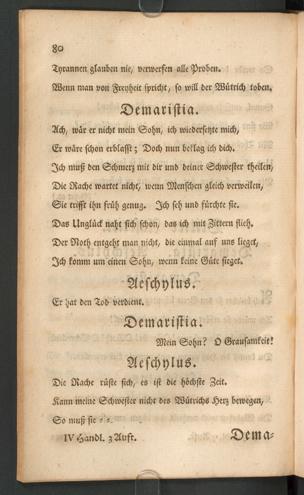 80
Tyrannen glauben nie, verwerfen alle Proben.
Wenn man von Freyheit spricht, so will der Wütrich toben.
Demaristia.
Ach, wär er nicht mein Sohn, ich wiedersetzte mich,
Er wäre schon erblasst; Doch nun beklag ich dich.
Ich muß den Schmerz mit dir und deiner Schwester theilen,
Die Rache wartet nicht, wenn Menschen gleich verweilen,
Sie trifft ihn früh genug. Ich seh und fürchte sie.
Das Unglück naht sich schon, das ich mit Zittern flieh.
Der Noth entgeht man nicht, die einmal auf uns lieget,
Ich komm um einen Sohn, wenn keine Güte sieget.
Aeschylus.
Er hat den Tod verdient.
Demaristia.
Mein Sohn? O Grausamkeit!
Aeschylus.
Die Rache rüste sich, es ist die höchste Zeit.
Kann meine Schwester nicht des Wütrichs Herz bewegen,
So muß sie - -
IV Handl. 3 Auft.
Dema-